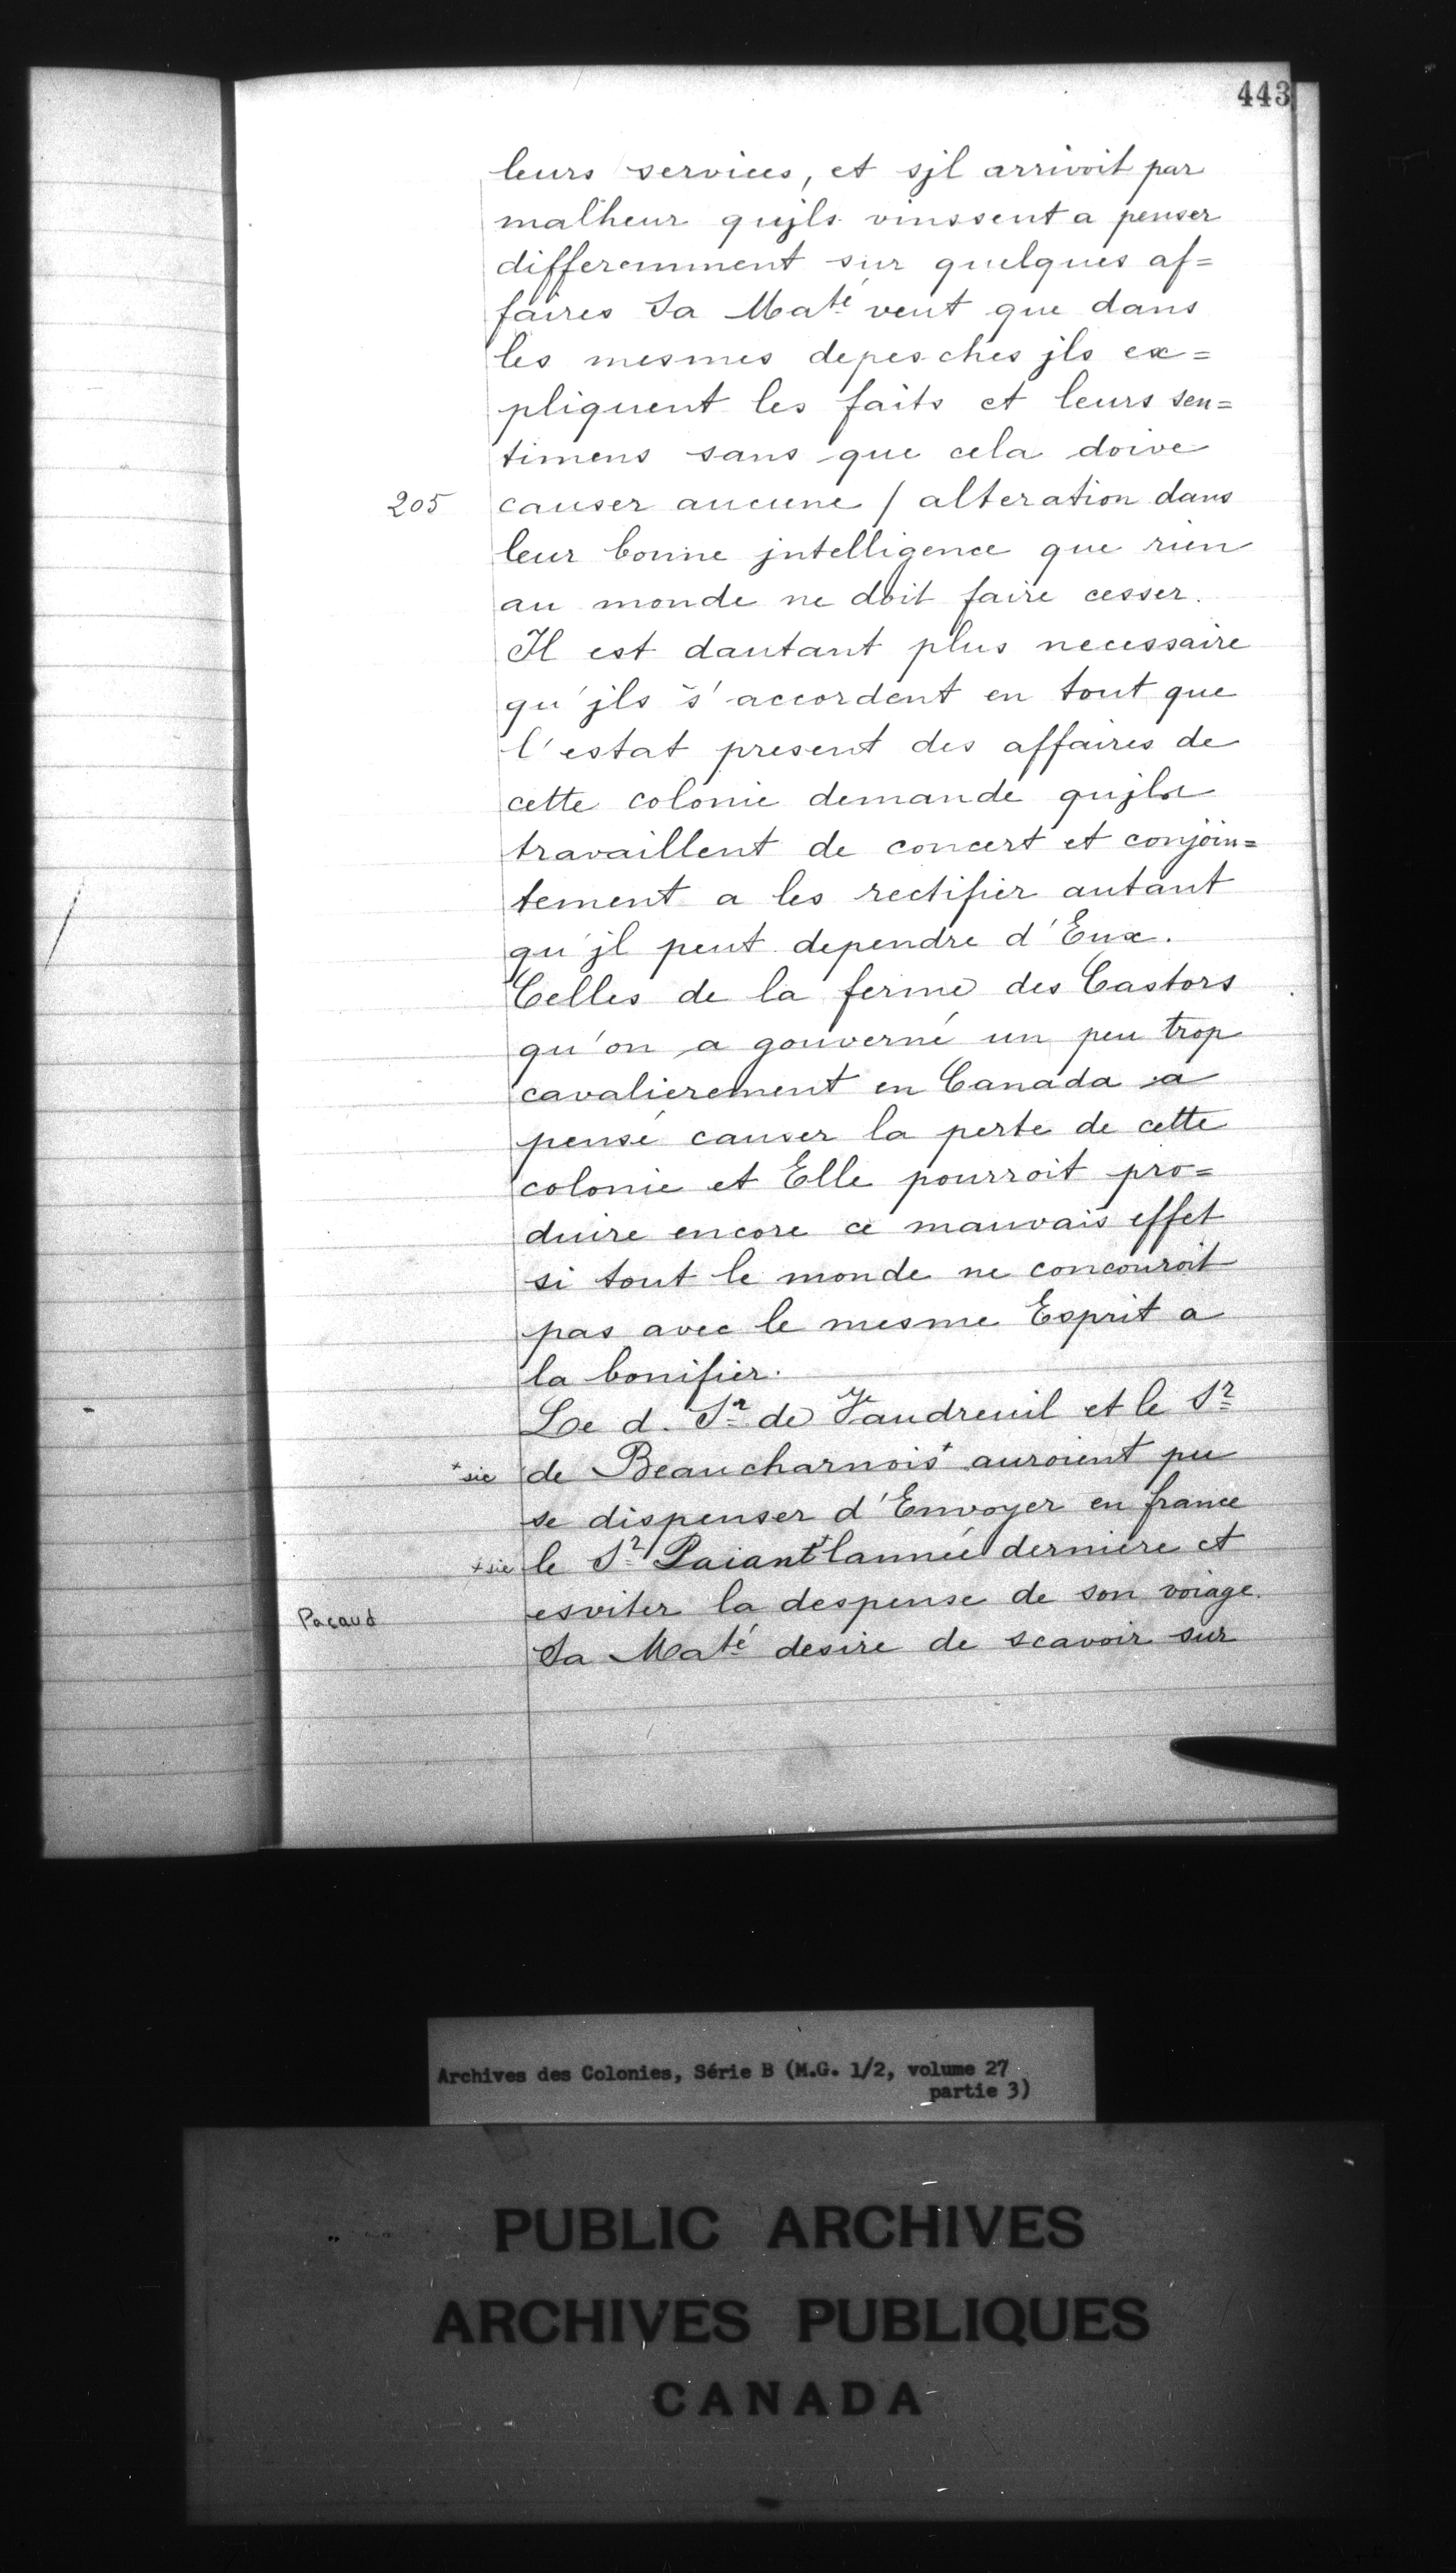 443
leurs services, et sjl arrivoit par
malheur qujls vinssent a penser
differemment sur quelques af=
faires Sa Maté veut que dans
les mesmes depesches jls ex=
pliquent les faits et leurs sen=
timens sans que cela doive
205 causer aucune / alteration dans
leur bonne jntelligence que rien
au monde ne doit faire cesser.
Il est dautant plus necessaire
qu'jls s'accordent en tout que
l'estat present des affaires de
cette colonie demande qujls
travaillent de concert et conjoin=
tement a les rectifier autant
qu'jl peut dependre d'Eux.
Celles de la ferme des Castors
qu'on a gouverné un peu trop
cavalierement en Canada a
pensé causer la perte de cette
colonie et Elle pourroit pro=
duire encore ce mauvais effet
si tout le monde ne concouroit
pas avec le mesme Esprit a
la bonifier.
Le d. Sr de Vaudreuil et le Sr
*sic de Beaucharnois* auroient pu
se dispenser d'Envoyer en france
+sic le Sr Paiant+ lannée derniere et
esviter la despense de son voiage.
Pacaud
Sa Maté desire de scavoir sur
Archives des Colonies, Série B (M.G. 1/2, volume 27
partie 3)
PUBLIC ARCHIVES
ARCHIVES PUBLIQUES
CANADA